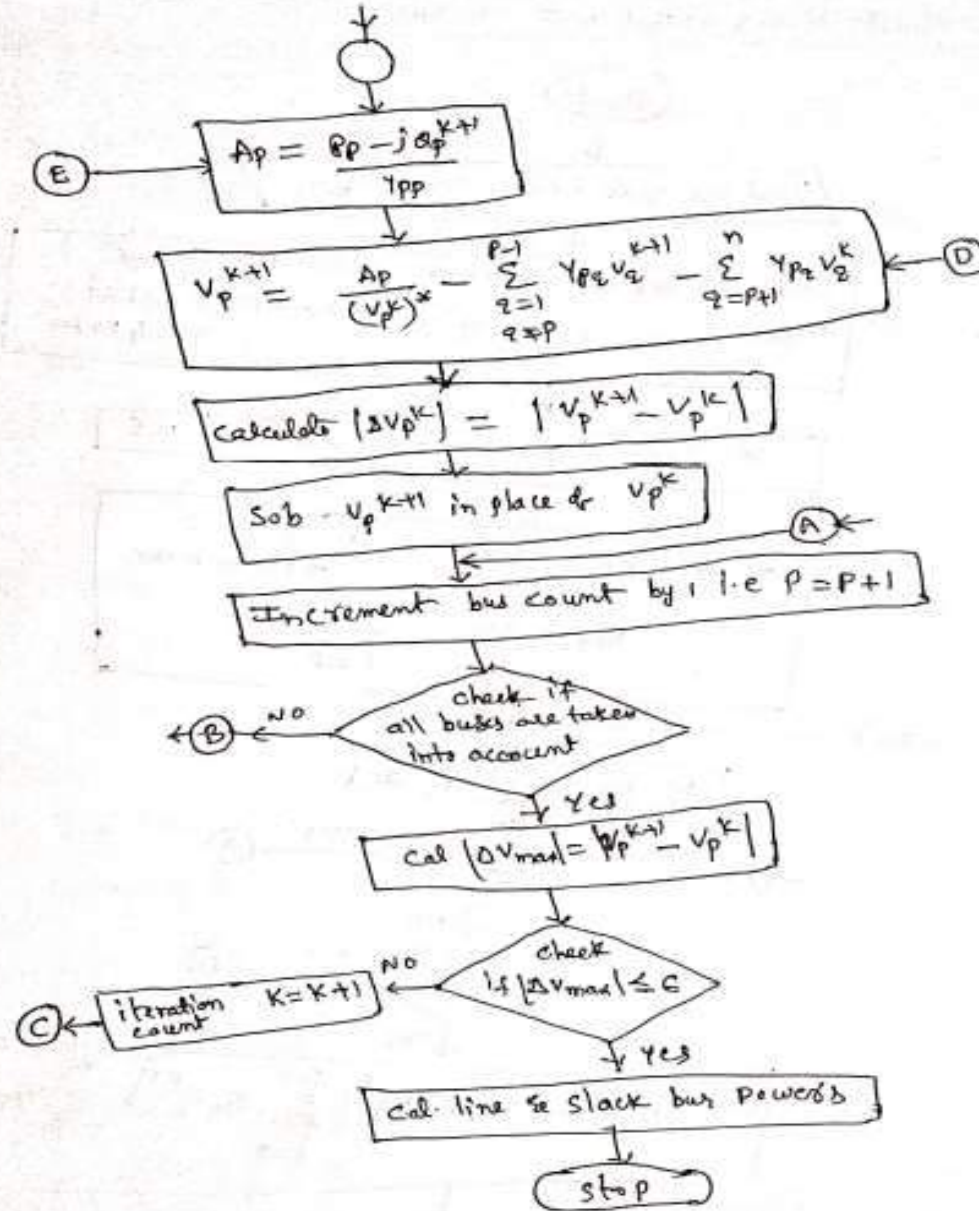 E
Ap = Pp - jQp^k+1 / Ypp
Vp^k+1 = Ap / (Vp^k)* - Σ q=1 q≠p ^p-1 Ypq Vq^k+1 - Σ q=p+1 ^n Ypq Vq^k
D
Calculate |ΔVp^k| = |Vp^k+1 - Vp^k|
Sub - Vp^k+1 in place of Vp^k
A
Increment bus count by 1 i.e P = P+1
check if
all buses are taken
into accoount
NO
B
Yes
Cal |ΔVmax| = |Vp^k+1 - Vp^k|
check
if |ΔVmax| ≤ ε
NO
iteration K = K+1
count
C
Yes
Cal. line & Slack bus Powers
Stop